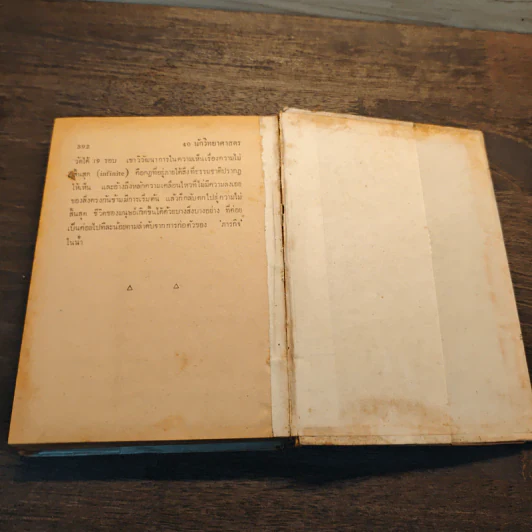 ๖๓๔ ๔๐ นักวิทยาศาสตร์
วัตได้ 18 รอบ เขาวิวัฒนาการในความเห็นเรื่องความไม่
สิ้นสุด (infinite) คือกฎที่อยู่ภายใต้สิ่งที่ธรรมชาติปรากฏ
ให้เห็น และอ้างถึงหลักความเคลื่อนไหวที่ไม่มีความลงเอย
ของสิ่งตรงกันข้ามมีการเริ่มต้น แล้วก็กลับตกไปสู่ความไม่
สิ้นสุด ชีวิตของมนุษย์เกิดขึ้นได้ด้วยบางสิ่งบางอย่าง ที่ค่อย
เป็นค่อยไปทีละน้อยตามลำดับจากการก่อตัวของ
ในน้ำ